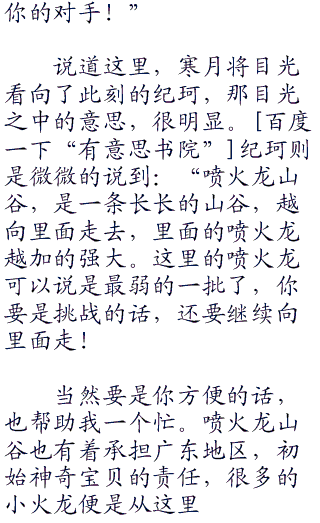 你的对手！”
说道这里，寒月将目光
看向了此刻的纪珂，那目光
之中的意思，很明显。[百度
一下“有意思书院”]纪珂则
是微微的说到：“喷火龙山
谷，是一条长长的山谷，越
向里面走去，里面的喷火龙
越加的强大。这里的喷火龙
可以说是最弱的一批了，你
要是挑战的话，还要继续向
里面走！
当然要是你方便的话，
也帮助我一个忙。喷火龙山
谷也有着承担广东地区，初
始神奇宝贝的责任，很多的
小火龙便是从这里